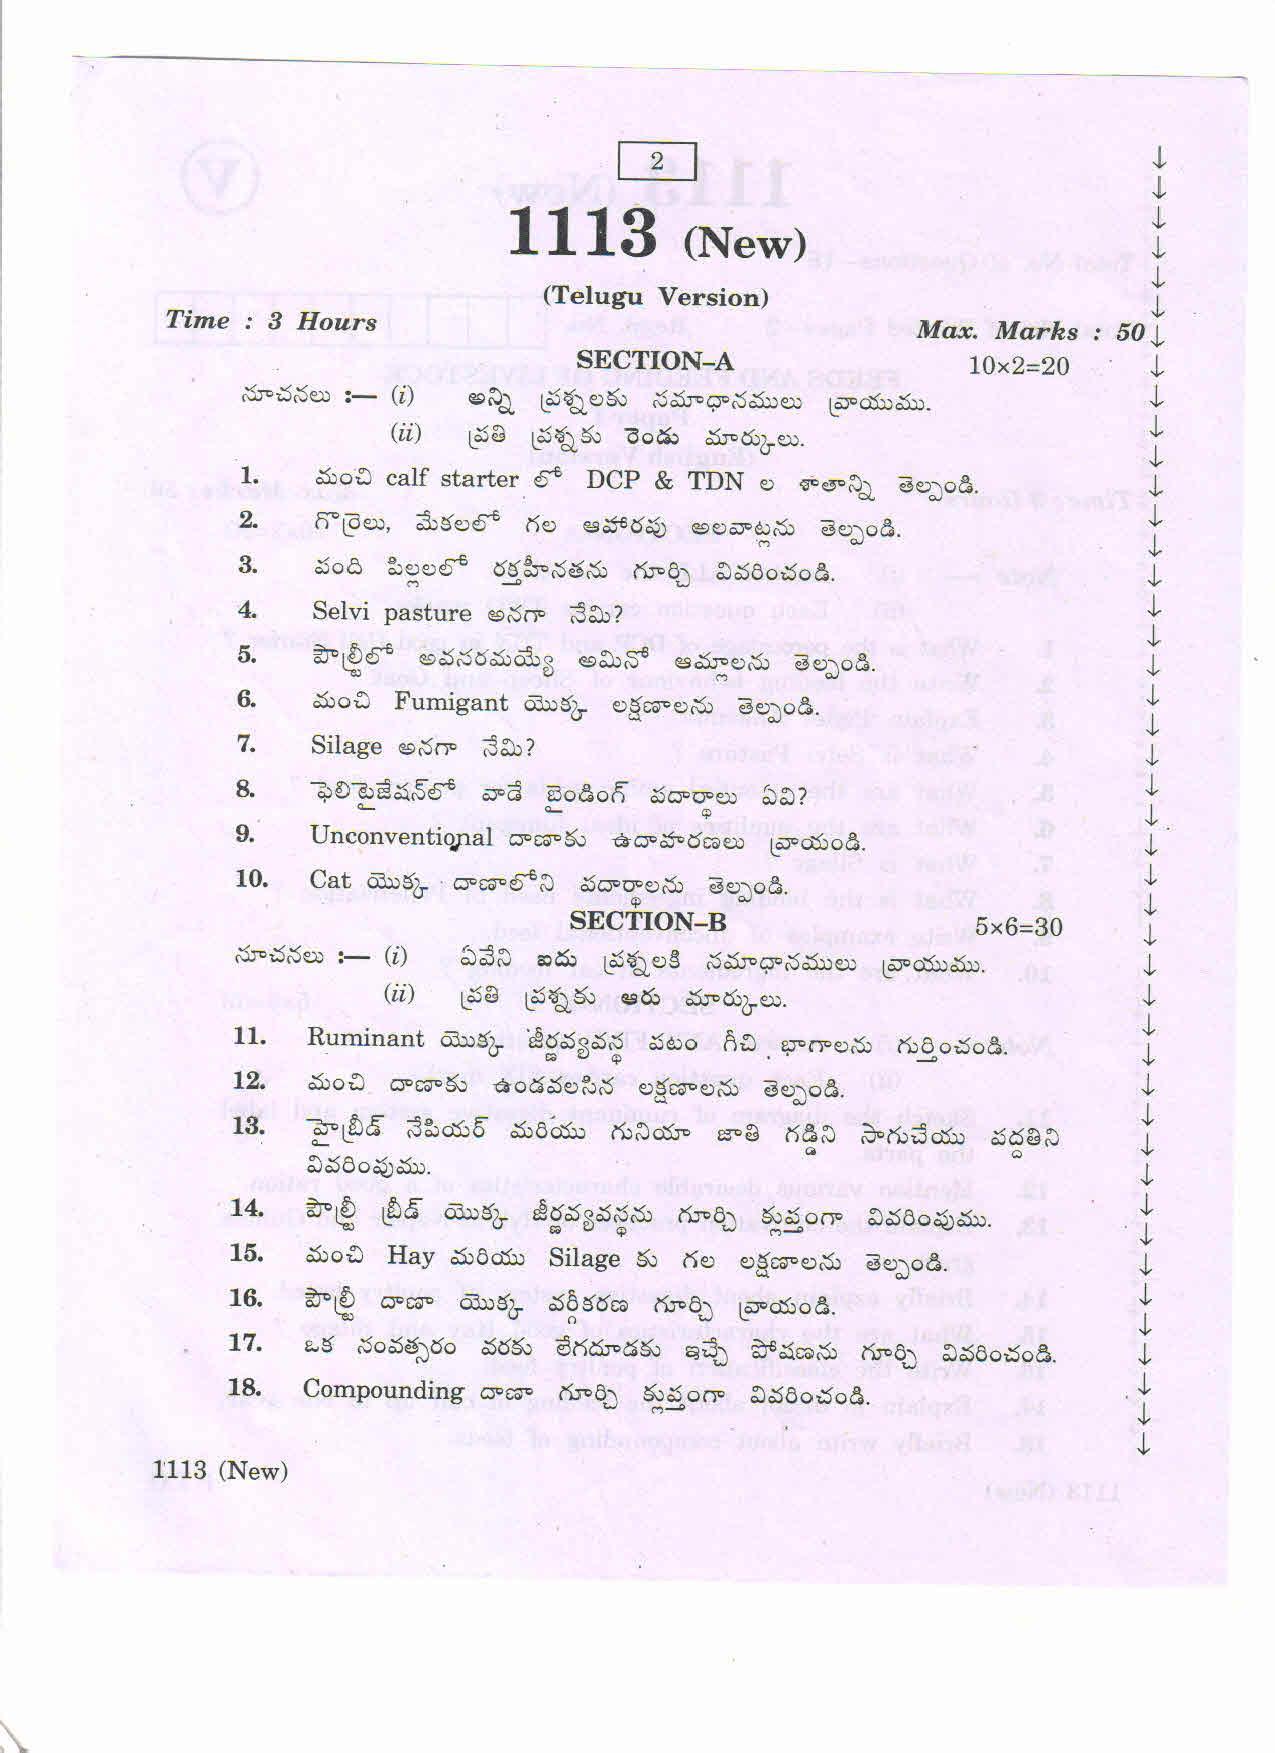 2
1113 (New)
(Telugu Version)
Time : 3 Hours Max. Marks : 50
SECTION–A 10×2=20
సూచనలు :— (i) అన్ని ప్రశ్నలకు సమాధానములు వ్రాయుము.
(ii) ప్రతి ప్రశ్నకు రెండు మార్కులు.
1. మంచి calf starter లో DCP & TDN ల శాతాన్ని తెల్పండి.
2. గొర్రెలు, మేకలలో గల ఆహారపు అలవాట్లను తెల్పండి.
3. పంది పిల్లలలో రక్తహీనతను గూర్చి వివరించండి.
4. Selvi pasture అనగా నేమి?
5. పౌల్ట్రీలో అవసరమయ్యే అమినో ఆమ్లాలను తెల్పండి.
6. మంచి Fumigant యొక్క లక్షణాలను తెల్పండి.
7. Silage అనగా నేమి?
8. ఫెలిటైజేషన్‌లో వాడే బైండింగ్ పదార్థాలు ఏవి?
9. Unconventional దాణాకు ఉదాహరణలు వ్రాయండి.
10. Cat యొక్క దాణాలోని పదార్థాలను తెల్పండి.
SECTION–B 5×6=30
సూచనలు :— (i) ఏవేని ఐదు ప్రశ్నలకి సమాధానములు వ్రాయుము.
(ii) ప్రతి ప్రశ్నకు ఆరు మార్కులు.
11. Ruminant యొక్క జీర్ణవ్యవస్థ పటం గీచి భాగాలను గుర్తించండి.
12. మంచి దాణాకు ఉండవలసిన లక్షణాలను తెల్పండి.
13. హైబ్రీడ్ నేపియర్ మరియు గునియా జాతి గడ్డిని సాగుచేయు పద్దతిని
వివరింపుము.
14. పౌల్ట్రీ బ్రీడ్ యొక్క జీర్ణవ్యవస్థను గూర్చి క్లుప్తంగా వివరింపుము.
15. మంచి Hay మరియు Silage కు గల లక్షణాలను తెల్పండి.
16. పౌల్ట్రీ దాణా యొక్క వర్గీకరణ గూర్చి వ్రాయండి.
17. ఒక సంవత్సరం వరకు లేగదూడకు ఇచ్చే పోషణను గూర్చి వివరించండి.
18. Compounding దాణా గూర్చి క్లుప్తంగా వివరించండి.
1113 (New)